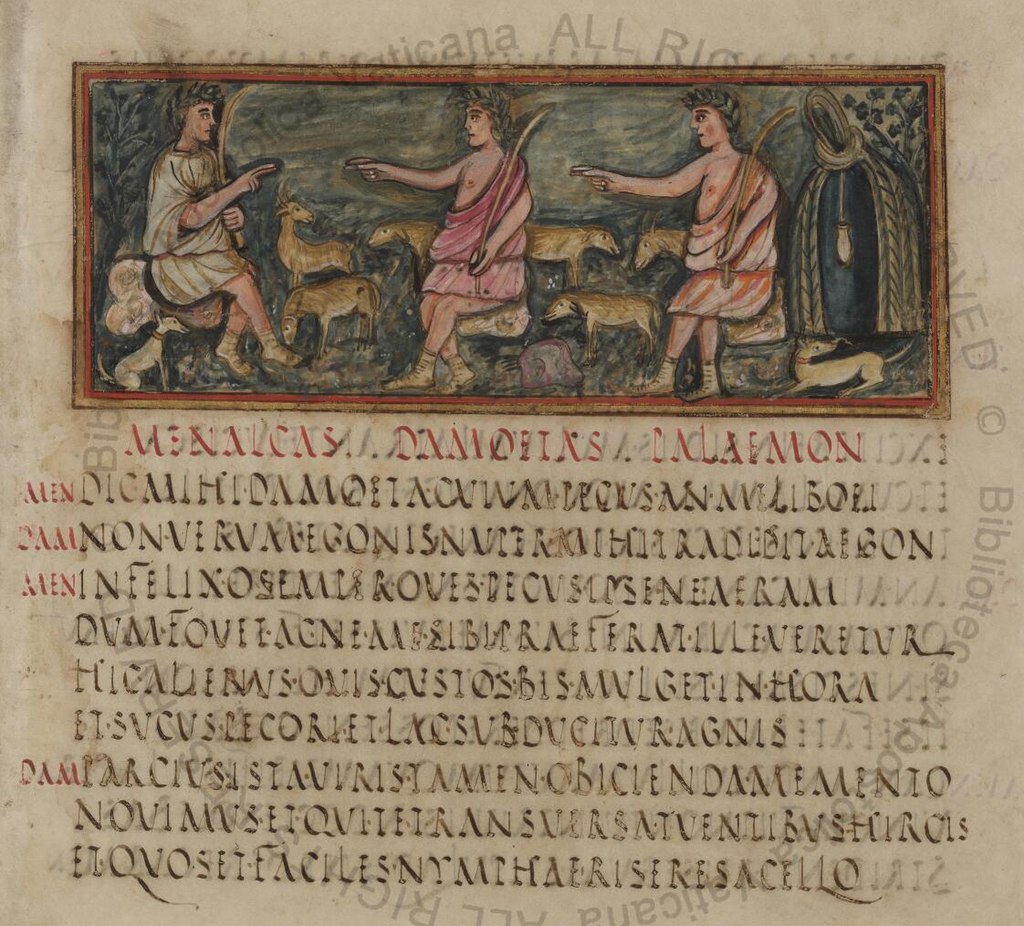 MENALCAS · DAMOETAS · PALAEMON
MEN DIC·MIHI·DAMOETA·CVIVM·PECVS·AN·MELIBOEI
DAM NON·VERVM·EGONIS·NVPER·MIHI·TRADIDIT·AEGON
MEN INFELIX·O·SEMPER·OVES·PECVS·IPSE·NEAERAM
DVM·FOVET·AC·NE·ME·SIBI·PRAEFERAT·ILLE·VERETVR
HIC·ALIENVS·OVIS·CVSTOS·BIS·MVLGET·IN·HORA
ET·SVCVS·PECORI·ET·LAC·SVBDVCITVR·AGNIS
DAM PARCIVS·ISTA·VIRIS·TAMEN·OBICIENDA·MEMENTO
NOVIMVS·ET·QVI·TE·TRANSVERSA·TVENTIBVS·HIRCIS
ET·QVO·SET·FACILES·NYMPHAE·RISERE·SACELLO